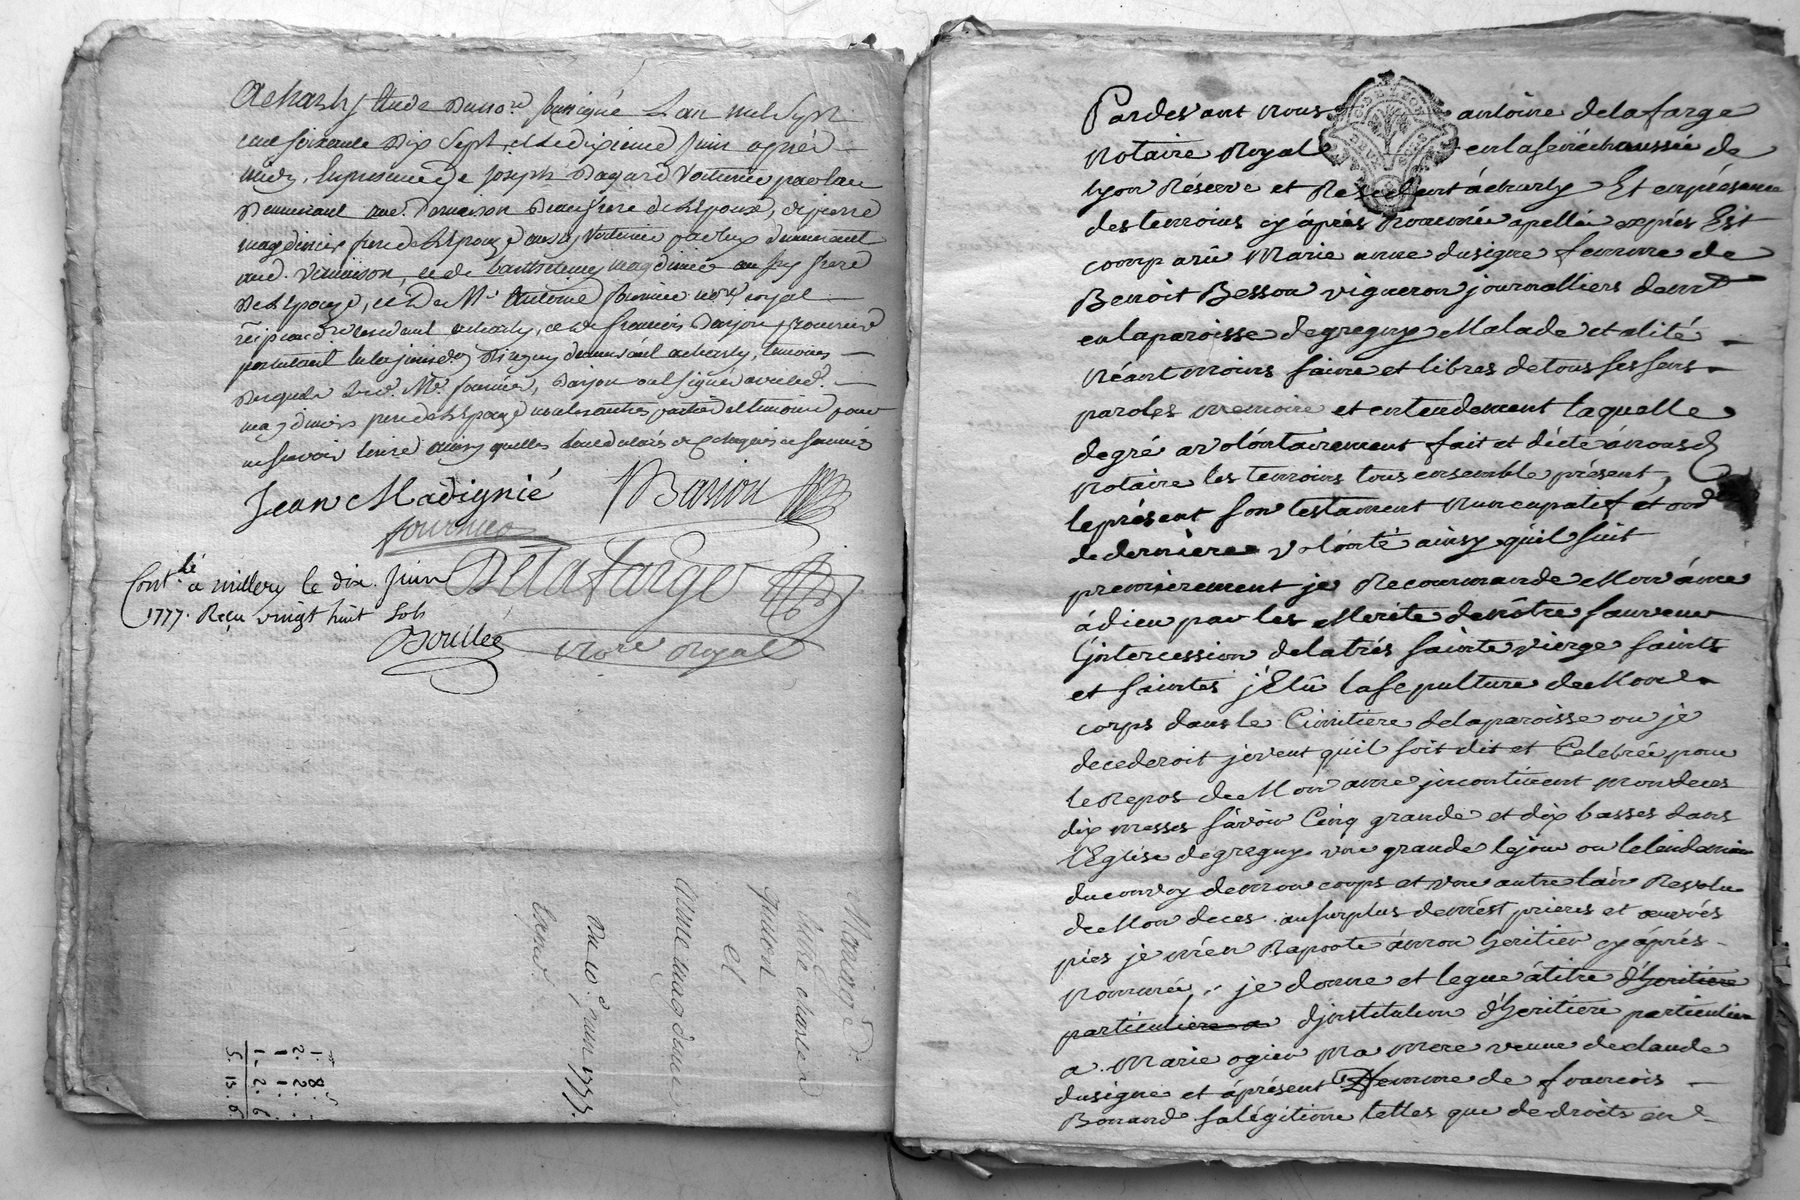 Acharly Etude Du no.re soussigné L'an mil sept
cent soixante Dix Sept, et Le dixieme Juin aprés
midy, En presence de Joseph Dagard Voiturier par eau
Demeurant aud. Vernaison Beaufrere de L'Epoux, de pierre
magdinier frere de L'Epouze aussy Voiturier par eau demeurant
aud. Vernaison, et de barthelemy magdinier aussy frere
De L'Epouze, et De M.e Antoine fournier no.re royal
residant acharly, et de francois Barjon
demeurant acharly, temoins
Desquels Led. M.e fournier, Barjon ont signé avec led.
magdinier pere de L'Epouze non les autres parties et temoins pour
ne scavoir Ecrire ainsy qu'elles l'ont declaré de ce Enquis et sommés
Jean Madignié Barjon
fournier
Delafarge
Cont.lé a millery le dix Juin
1777. Reçu vingt huit sols
Boullée
No.re Royal
Mariage D.
Junon
et
Anne magdinier
Du 10.e Juin 1777.
Exped.
1. 8.
2. 2.
1. 1.
1. 2. 6
5. 13. 6
Pardevant nous antoine delafarge
Notaire Royal en la sénéchaussée de
lyon Réservé et Résident á charly Et en présence
des temoins cy áprés nommée apellée exprés Est
comparû Marie anne dusigne femme de
Benoit Besson vigneron journalliers demt
en la paroisse de gregny Malade et alité
Néant moins saine et libres de tous ses sens
paroles memoire et entendement laquelle
degré a volóntairement fait et dicté á nous d
Notaire les temoins tous ensemble présent,
le présent son testament Nuncupatif et ord
de derniere volonté ainsy qu'il suit
premierement je Recommande Mon áme
á dieu par les Merite de nótre sauveur
l'jntercession de la trés sainte vierge saints
et saintes j'Elû la sepulture de Mon
corps dans le Cimitiere de la paroisse ou je
decederoit je veut qu'il soit dit et Celebrée pour
le Repos de Mon ame jncontinent mon deces
dix messes sávoir Cinq grande et dix basses dans
l'Eglise de gregny une grande le jour ou le lendemain
du convoy de mon corps et une autre l'an Revolu
de Mon deces. au surplus de més prieres et oeuvrés
pies je m'en Raporte ámon heritier cy áprés
Nommée, je donne et legue á titre d'heritiere
particuliere a d'jnstitution d'heritiere particuliere
a Marie ogier Ma mere veuve de claude
dusigne et áprésent femme de francois
Bonnand sa légitime telles que de droits en